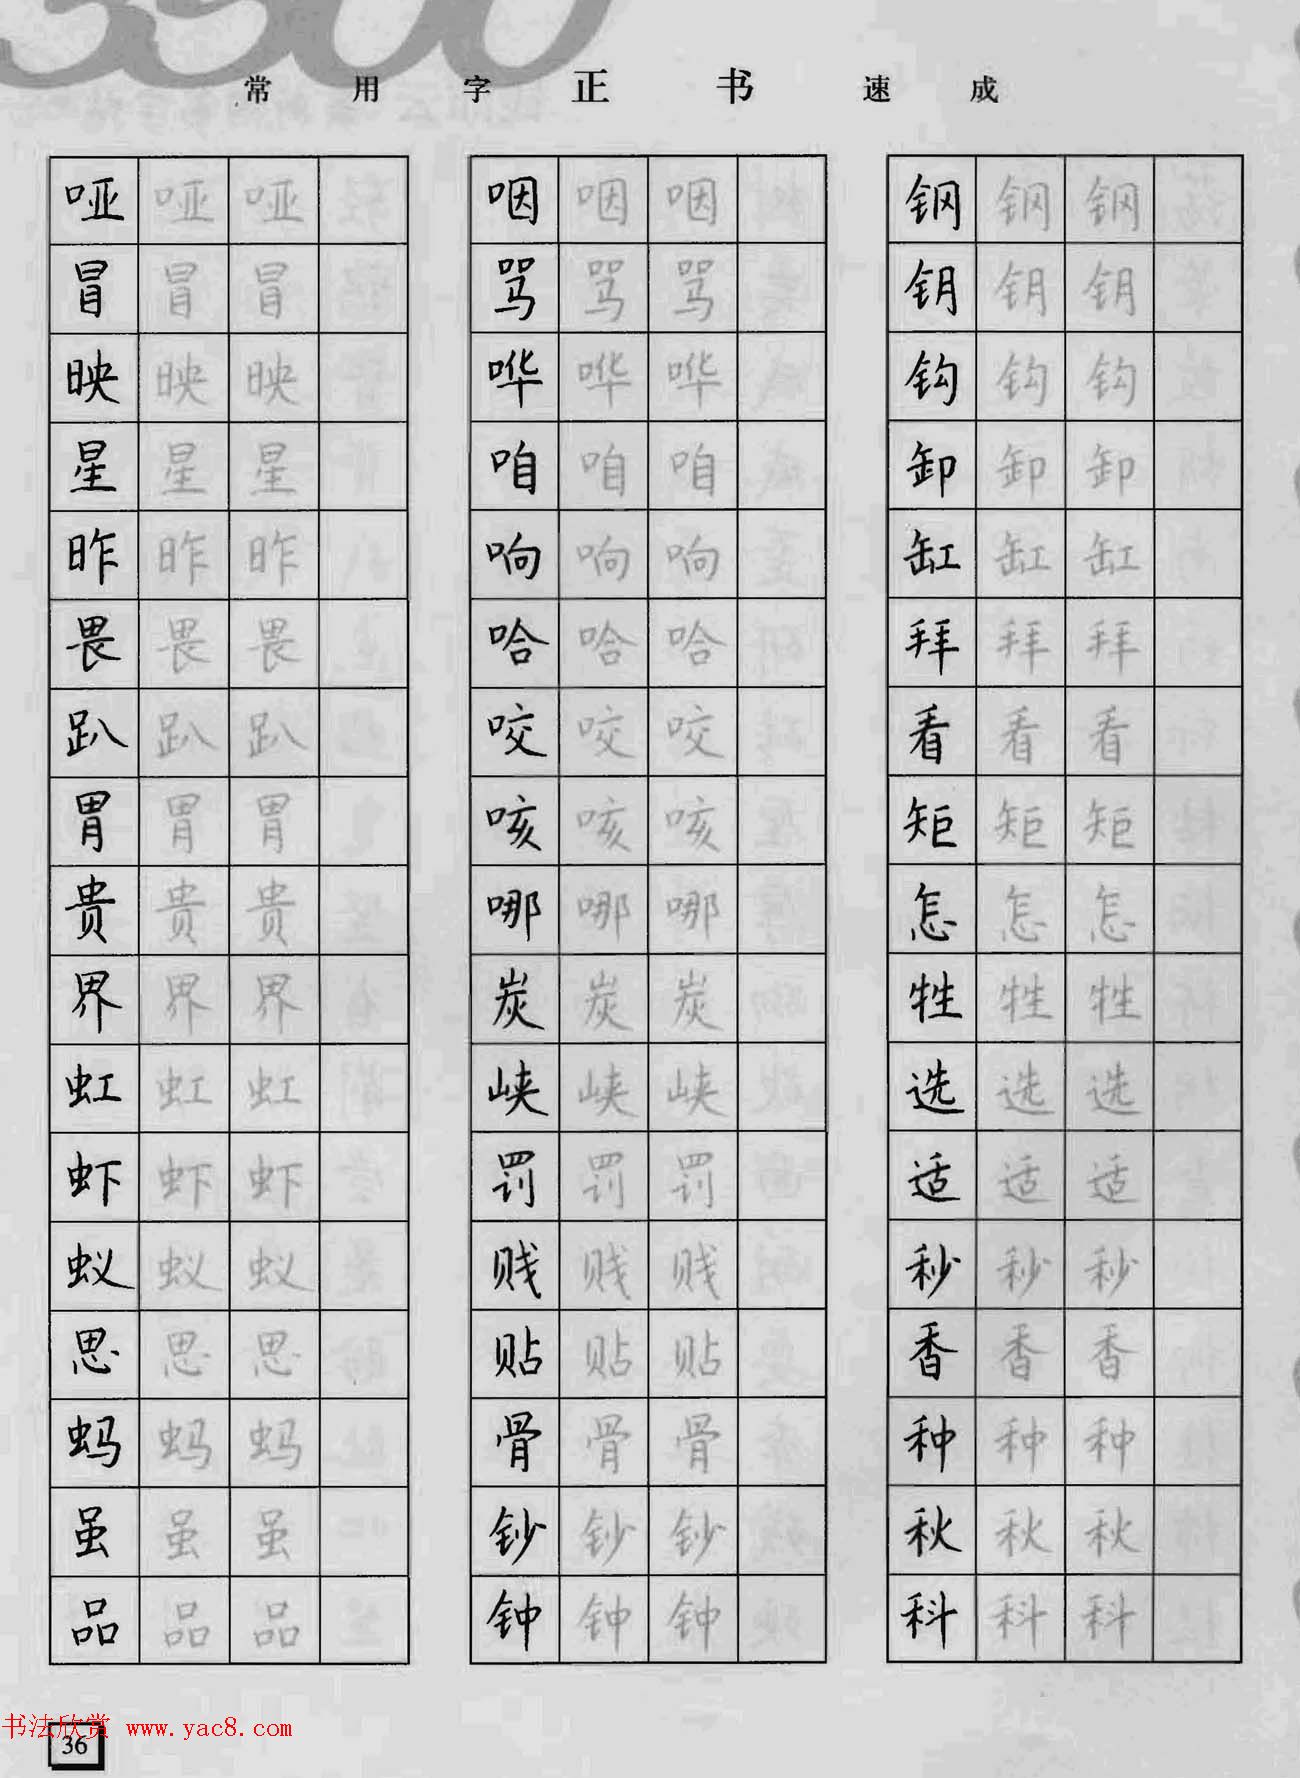 3500
常用字正书速成
哑 哑 哑 咽 咽 咽 钢 钢 钢
冒 冒 冒 骂 骂 骂 钥 钥 钥
映 映 映 哗 哗 哗 钩 钩 钩
星 星 星 咱 咱 咱 卸 卸 卸
昨 昨 昨 响 响 响 缸 缸 缸
畏 畏 畏 哈 哈 哈 拜 拜 拜
趴 趴 趴 咬 咬 咬 看 看 看
胃 胃 胃 咳 咳 咳 矩 矩 矩
贵 贵 贵 哪 哪 哪 怎 怎 怎
界 界 界 炭 炭 炭 牲 牲 牲
虹 虹 虹 峡 峡 峡 选 选 选
虾 虾 虾 罚 罚 罚 适 适 适
蚁 蚁 蚁 贱 贱 贱 秒 秒 秒
思 思 思 贴 贴 贴 香 香 香
蚂 蚂 蚂 骨 骨 骨 种 种 种
虽 虽 虽 钞 钞 钞 秋 秋 秋
品 品 品 钟 钟 钟 科 科 科
书法欣赏 www.yac8.com
36